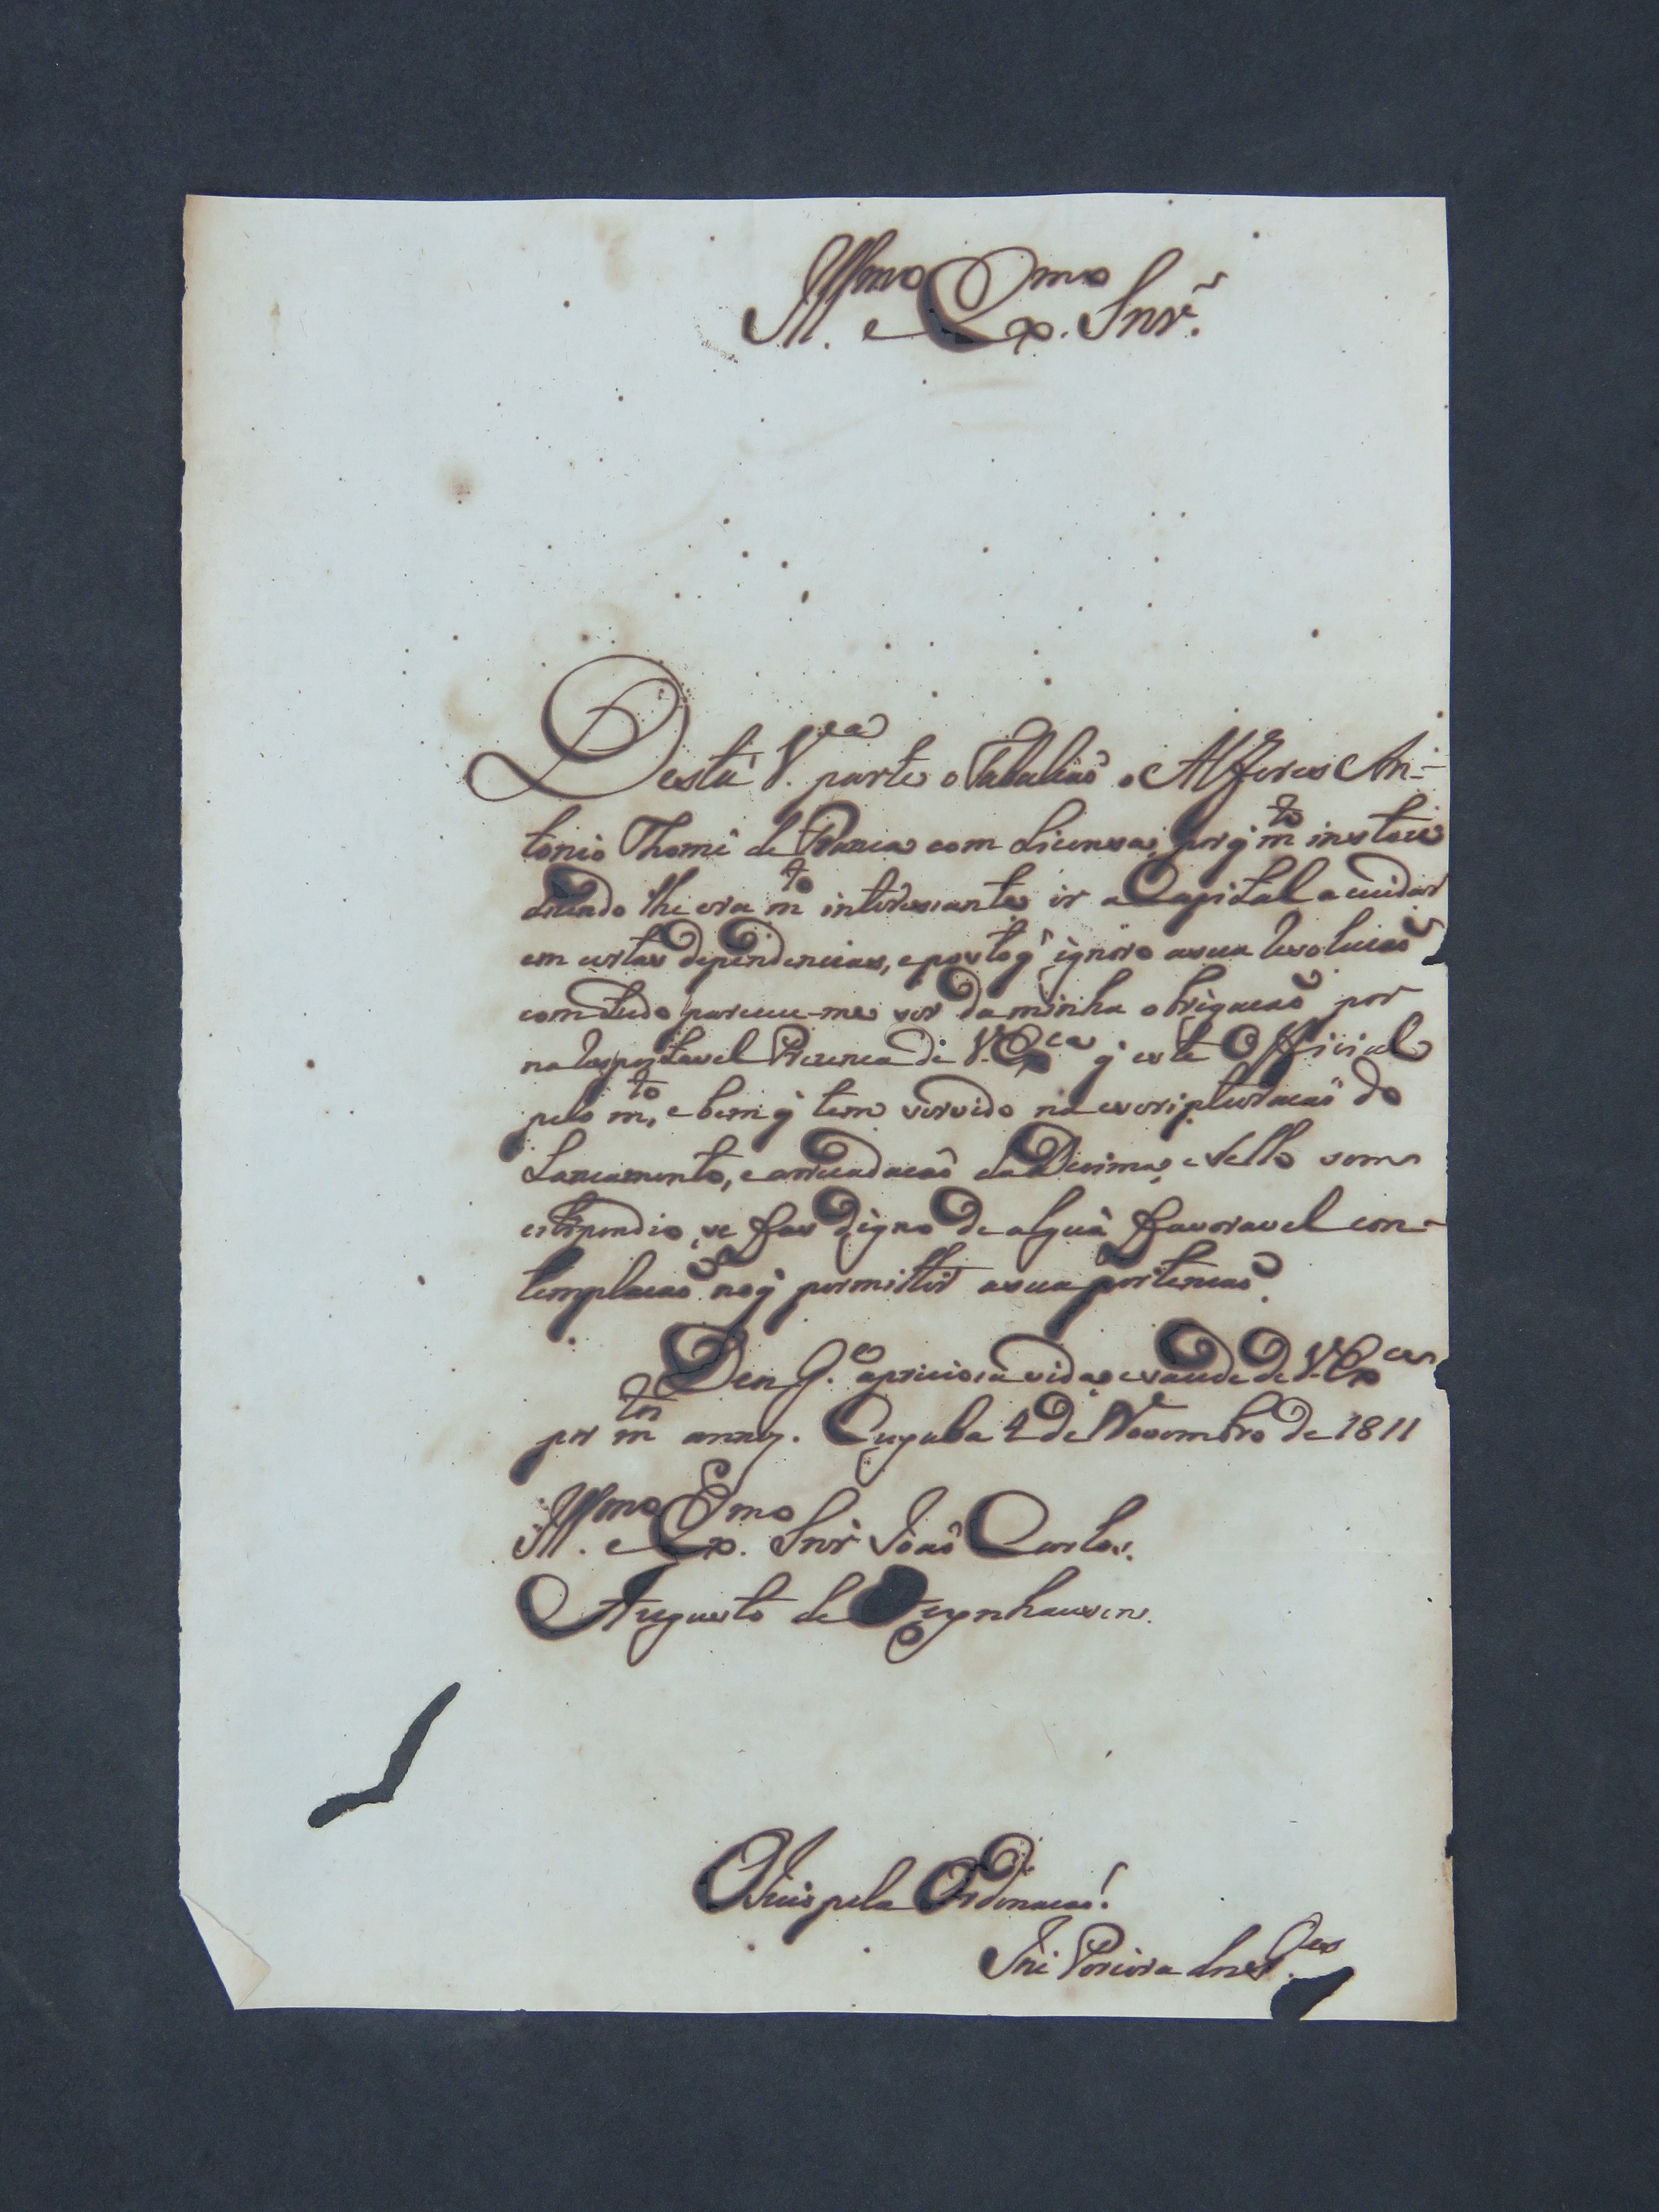 Ill.mo e Ex.mo Snr.
Desta V.ª parte o Taballiaõ o Alferes An-
tonio Thomé de França com Licensa, porq̃ m.to instou
dizendo lhe era m.to interesante ir a Capital a cuidar
em certas dependencias, e posto q̃ ignoro a sua Rezoluçaõ
com tudo pareceu-me ser da minha obrigaçaõ por
na Respeitavel Prezença de V. Ex.ca q̃ este Official
pelo m.to, e bem q̃ tem servido na escripturaçaõ do
Lançamento, e arrecadaçaõ da Decima, e Sello sem
estipendio, se fas digno de alguã favoravel con-
templaçaõ no q̃ permittir a sua pertençaõ.
Deos g.e a preciosa vida, e saude de V. Ex.ca
por m.tos annos. Cuyaba 4 de Novembro de 1811
Ill.mo e Ex.mo Snr Joaõ Carlos
Augusto de Oeynhausen.
O Juis pela Ordenaçaõ
Pereira